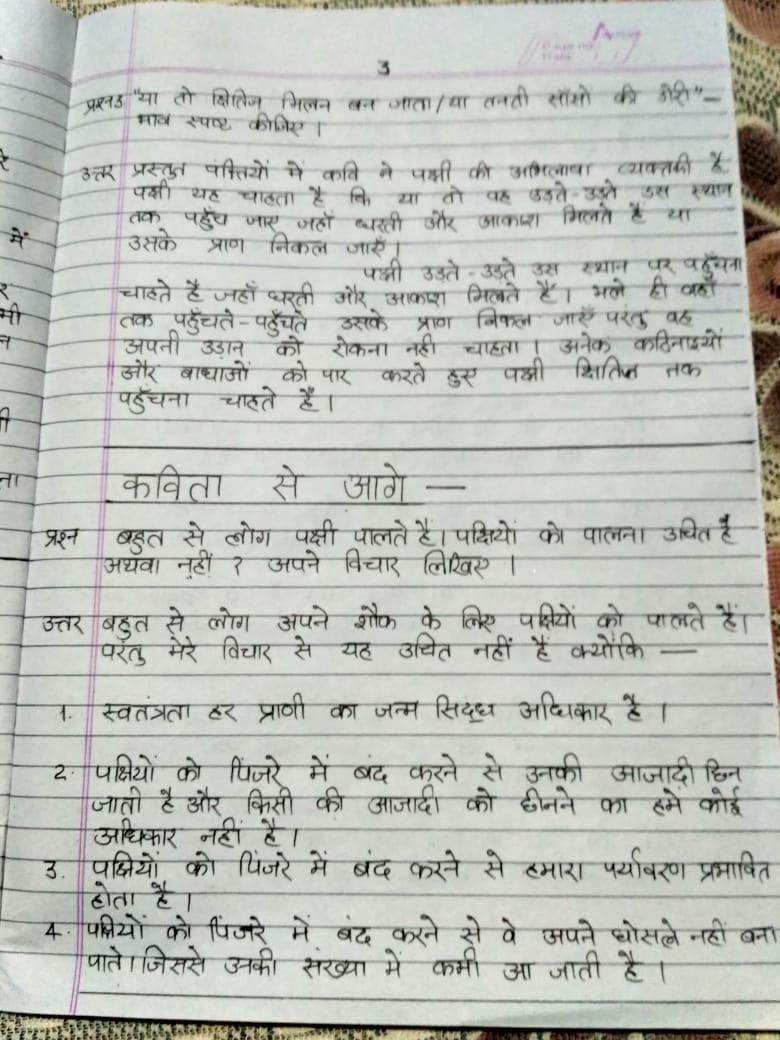 3
प्रश्न3 "या तो क्षितिज मिलन बन जाता/या तनती साँसों की डोरी" –
भाव स्पष्ट कीजिए ।
उत्तर प्रस्तुत पंक्तियों में कवि ने पक्षी की अभिलाषा व्यक्त की है
पक्षी यह चाहता है कि या तो वह उड़ते-उड़ते उस स्थान
तक पहुँच जाए जहाँ धरती और आकाश मिलते हैं या
उसके प्राण निकल जाएँ।
पक्षी उड़ते-उड़ते उस स्थान पर पहुँचना
चाहते हैं जहाँ धरती और आकाश मिलते हैं। भले ही वहाँ
तक पहुँचते-पहुँचते उसके प्राण निकल जाएँ परंतु वह
अपनी उड़ान को रोकना नही चाहता । अनेक कठिनाइयों
और बाधाओं को पार करते हुए पक्षी क्षितिज तक
पहुँचना चाहते हैं।
कविता से आगे —
प्रश्न बहुत से लोग पक्षी पालते हैं। पक्षियों को पालना उचित है
अथवा नहीं ? अपने विचार लिखिए ।
उत्तर बहुत से लोग अपने शौक के लिए पक्षियों को पालते हैं।
परंतु मेरे विचार से यह उचित नहीं हैं क्योंकि —
1. स्वतंत्रता हर प्राणी का जन्म सिद्ध अधिकार है ।
2. पक्षियों को पिंजरे में बंद करने से उनकी आजादी छिन
जाती है और किसी की आजादी को छीनने का हमें कोई
अधिकार नहीं है।
3. पक्षियों को पिंजरे में बंद करने से हमारा पर्यावरण प्रभावित
होता है ।
4. पक्षियों को पिंजरे में बंद करने से वे अपने घोसले नहीं बना
पाते। जिससे उनकी संख्या में कमी आ जाती है ।